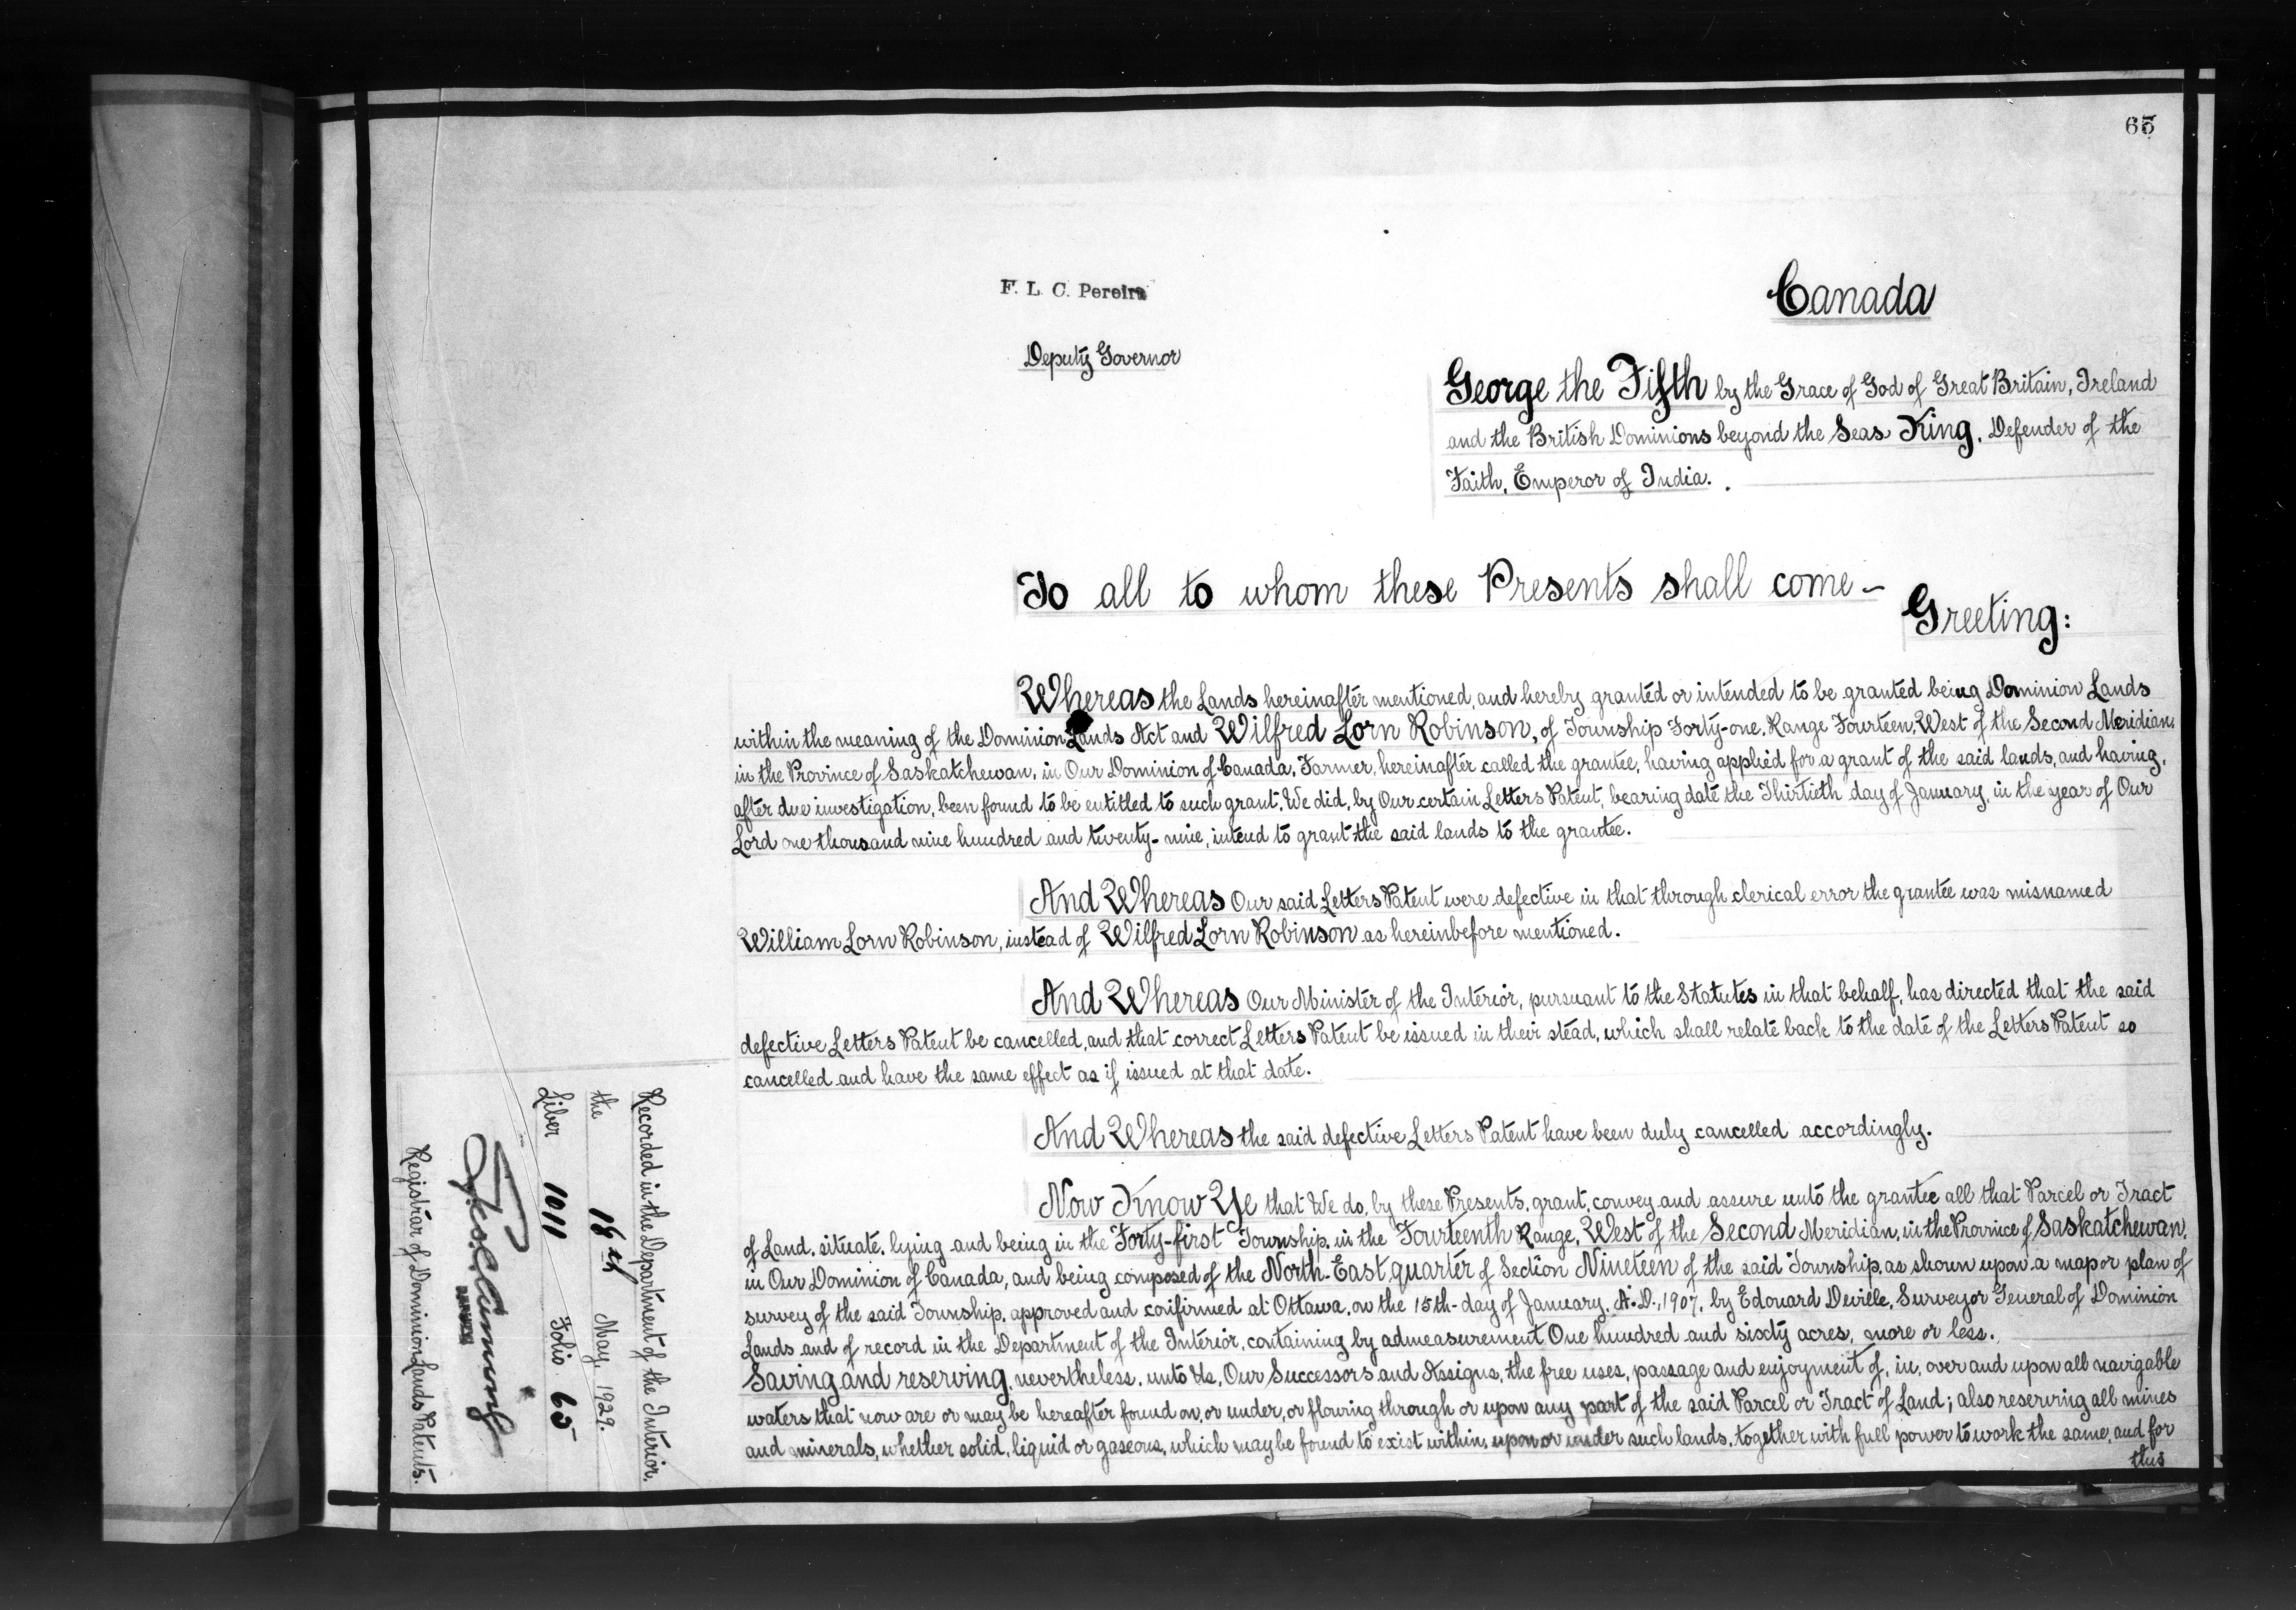 65
F. L. C. Pereira
Deputy Governor
Canada
George the Fifth by the Grace of God of Great Britain, Ireland
and the British Dominions beyond the Seas King, Defender of the
Faith, Emperor of India.
To all to whom these Presents shall come –
Greeting:
Whereas the Lands hereinafter mentioned, and hereby granted or intended to be granted being Dominion Lands
within the meaning of the Dominion Lands Act and Wilfred Lorn Robinson, of Township Forty-one, Range Fourteen, West of the Second Meridian,
in the Province of Saskatchewan, in Our Dominion of Canada, Farmer, hereinafter called the grantee, having applied for a grant of the said lands, and having,
after due investigation, been found to be entitled to such grant, We did, by Our certain Letters Patent, bearing date the Thirtieth day of January, in the year of Our
Lord one thousand nine hundred and twenty-nine, intend to grant the said lands to the grantee.
And Whereas Our said Letters Patent were defective in that through clerical error the grantee was misnamed
William Lorn Robinson, instead of Wilfred Lorn Robinson as hereinbefore mentioned.
And Whereas Our Minister of the Interior, pursuant to the Statutes in that behalf, has directed that the said
defective Letters Patent be cancelled, and that correct Letters Patent be issued in their stead, which shall relate back to the date of the Letters Patent so
cancelled and have the same effect as if issued at that date.
And Whereas the said defective Letters Patent have been duly cancelled accordingly.
Now Know Ye that We do, by these Presents, grant, convey and assure unto the grantee all that Parcel or Tract
of Land, situate, lying and being in the Forty-first Township, in the Fourteenth Range, West of the Second Meridian, in the Province of Saskatchewan,
in Our Dominion of Canada, and being composed of the North-East quarter of Section Nineteen of the said Township, as shown upon a map or plan of
survey of the said Township, approved and confirmed at Ottawa, on the 15th day of January, A.D., 1907, by Edouard Deville, Surveyor General of Dominion
Lands and of record in the Department of the Interior, containing by admeasurement One hundred and sixty acres, more or less.
Saving and reserving, nevertheless, unto Us, Our Successors and Assigns, the free uses, passage and enjoyment of, in, over and upon all navigable
waters that now are or may be hereafter found on, or under, or flowing through or upon any part of the said Parcel or Tract of Land; also reserving all mines
and minerals, whether solid, liquid or gaseous, which may be found to exist within, upon or under such lands, together with full power to work the same, and for
this
Recorded in the Department of the Interior,
the 18th May, 1929.
Liber 1011 Folio 65
Registrar of Dominion Lands Patents.